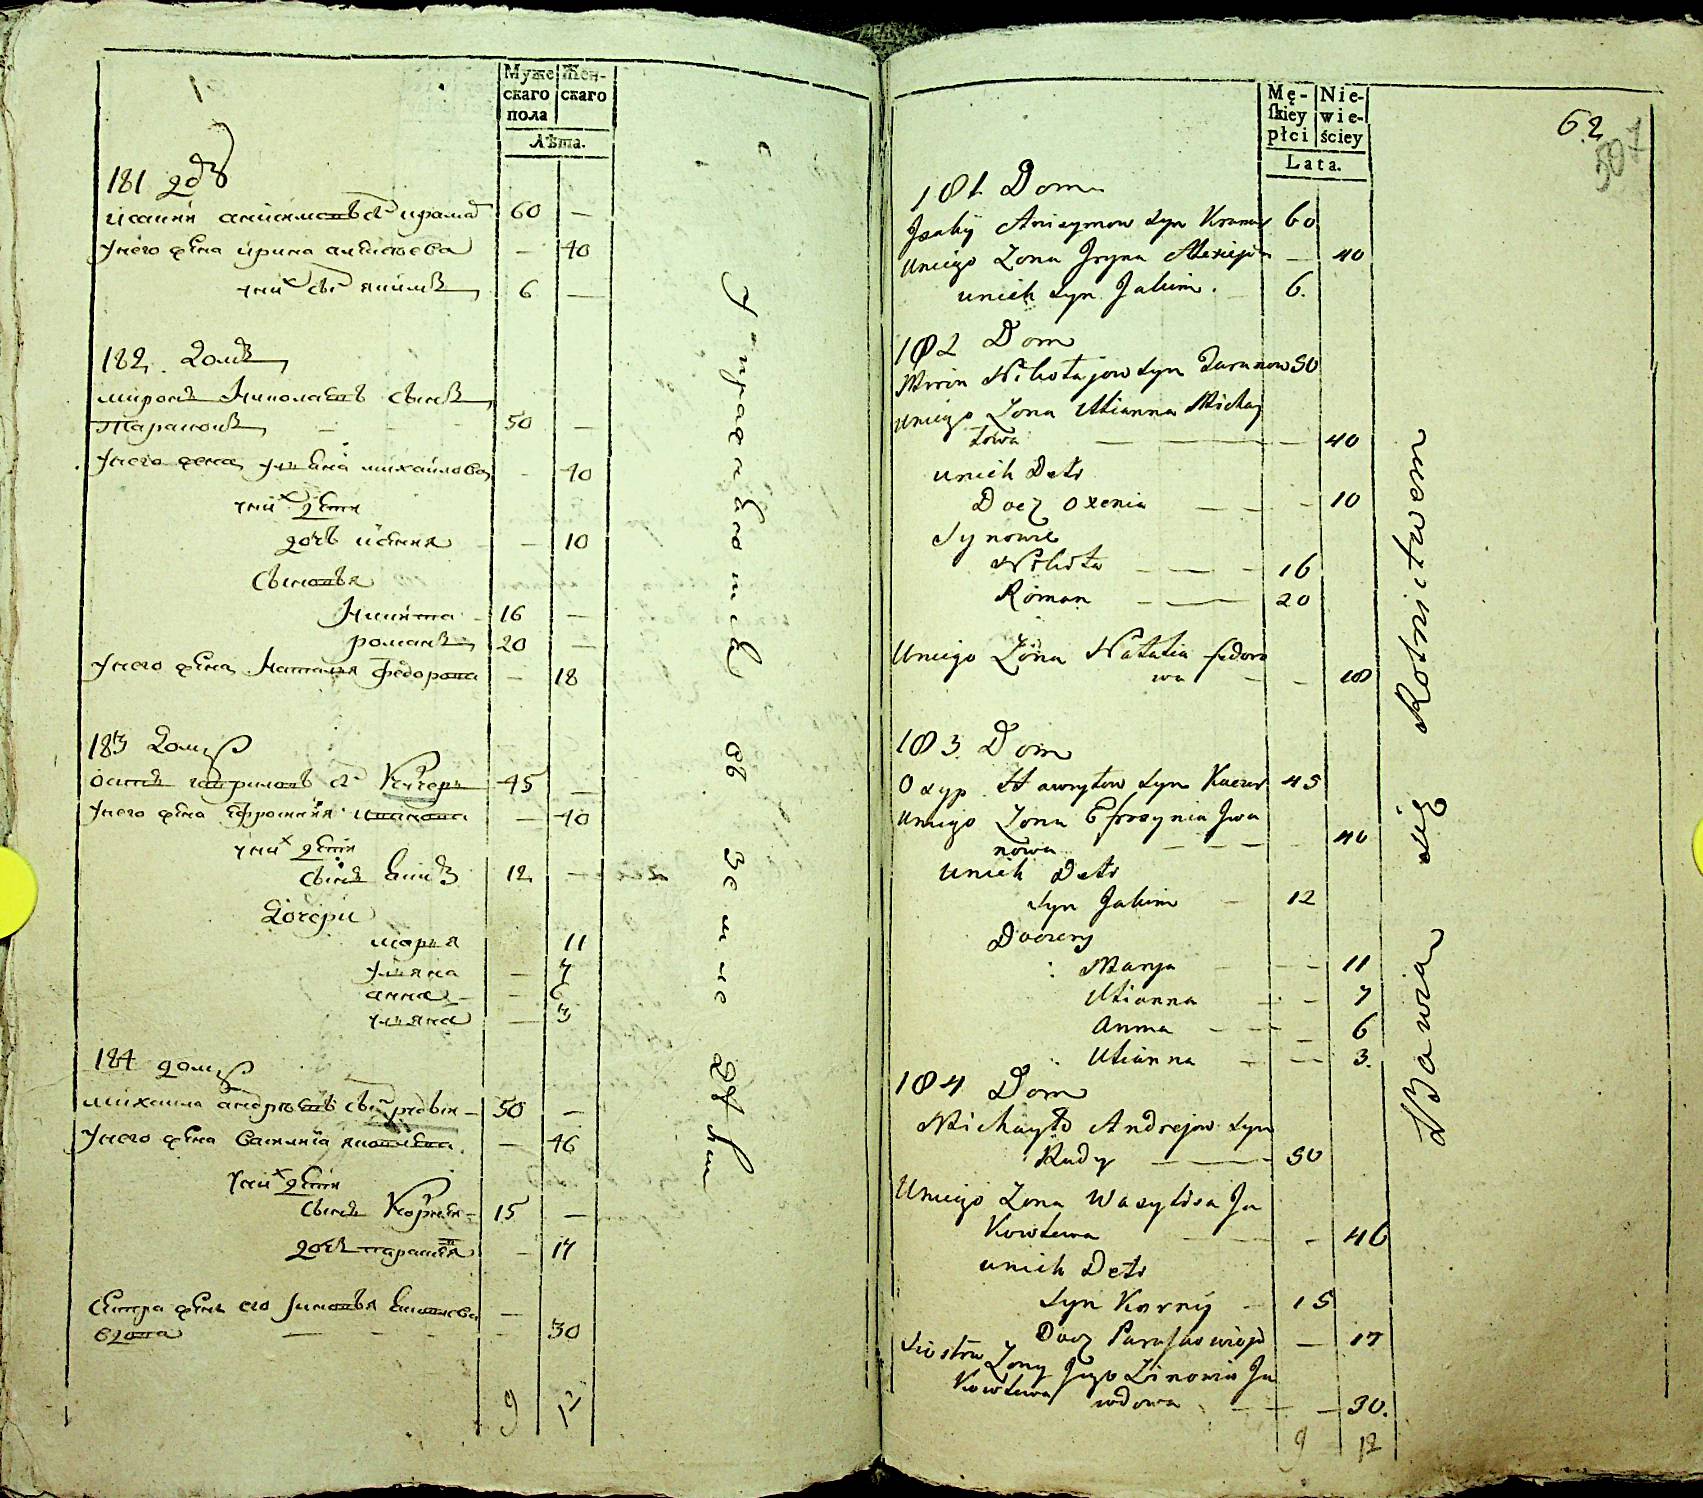 Муже
скаго
пола
Жен-
скаго
Лѣта.
181 дво
60 —
У него жена ирина — 40
у них сынъ якимъ 6 —
182. Домъ
миронъ николаевъ сынъ
таранов 50 —
У него жена ульяна михайлова — 40
у них дети
дочь — 10
сыновья
Никита 16 —
романъ 20 —
У него жена Наталья федорова — 18
183 Домъ
осипъ гавриловъ сы Кучеръ 45 —
У него жена ефросиния иванова — 40
у них дети
сынъ екимъ 12 —
Дочери
марья 11
ульяна — 7
анна — 6
ульяна — 3
184 домъ
михаила андреевъ сынъ рудыи — 50 —
У него жена василиса яковлева — 46
У них дети
сынъ Корней — 15 —
дочь парасковия — 17
сестра жены его зиновья яковлева —
вдова — 30
9 12
Упражняются в земледелии
Mę-
ſkiey
płci
Nie-
wie-
ściey
Lata.
62
507
181 Dom
Isakij Anisymow syn 60
Uniego Zona Jryna Alexiejow — 40
unich syn Jakim. — 6.
182 Dom
Miron Nikołajow syn Taranow 50
uniego Zona Ulianna Michaj
łowa — 40
unich Deti
Docz Oxenia — 10
Synowie
Nikita — 16
Roman — 20
Uniego Zona Natalia fedoro
wa — 18
183 Dom
Osyp Hawryłow syn Kuczer 45
Uniego Zona Efrozynia Jwa
nowa — 40
unich Deti
syn Jakim — 12
Doczery
Marya — 11
Ulianna — 7
Anna — 6
Ulianna — 3.
184 Dom
Michayło Andrejow syn
Rudy — 50
Uniego Zona Wasylisa Ja
kowlewa — 46
unich Deti
syn Korniy — 15
Docz — 17
Siostra Zony Jego Zinowia Ja
kowlewa wdowa — 30.
9 12
Bawią się Rolnictwem